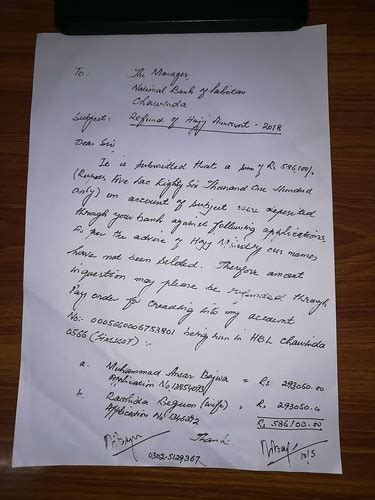 To: The Manager,
National Bank of Pakistan
Chawinda
Subject: Refund of Hajj Amount - 2018
Dear Sir,
It is submitted that a sum of Rs 586100/-
(Rupees Five Lac Eighty Six Thousand One Hundred
only) on account of subject were deposited
through your bank against following applications.
As per the advice of Hajj Ministry our names
have not been seleted. Therefore amount
in question may please be refunded through
Pay order for creading into my account
No: 0005660006753801 being run in HBL Chawinda
0566 (Sialkot) :-
a. Muhammad Ansar Bajwa = Rs 293050.00
Application No
b. Rashida Begum (wife) = Rs 293050.00
Application No Rs 586100.00
Thanks
0302-5129367
10/5